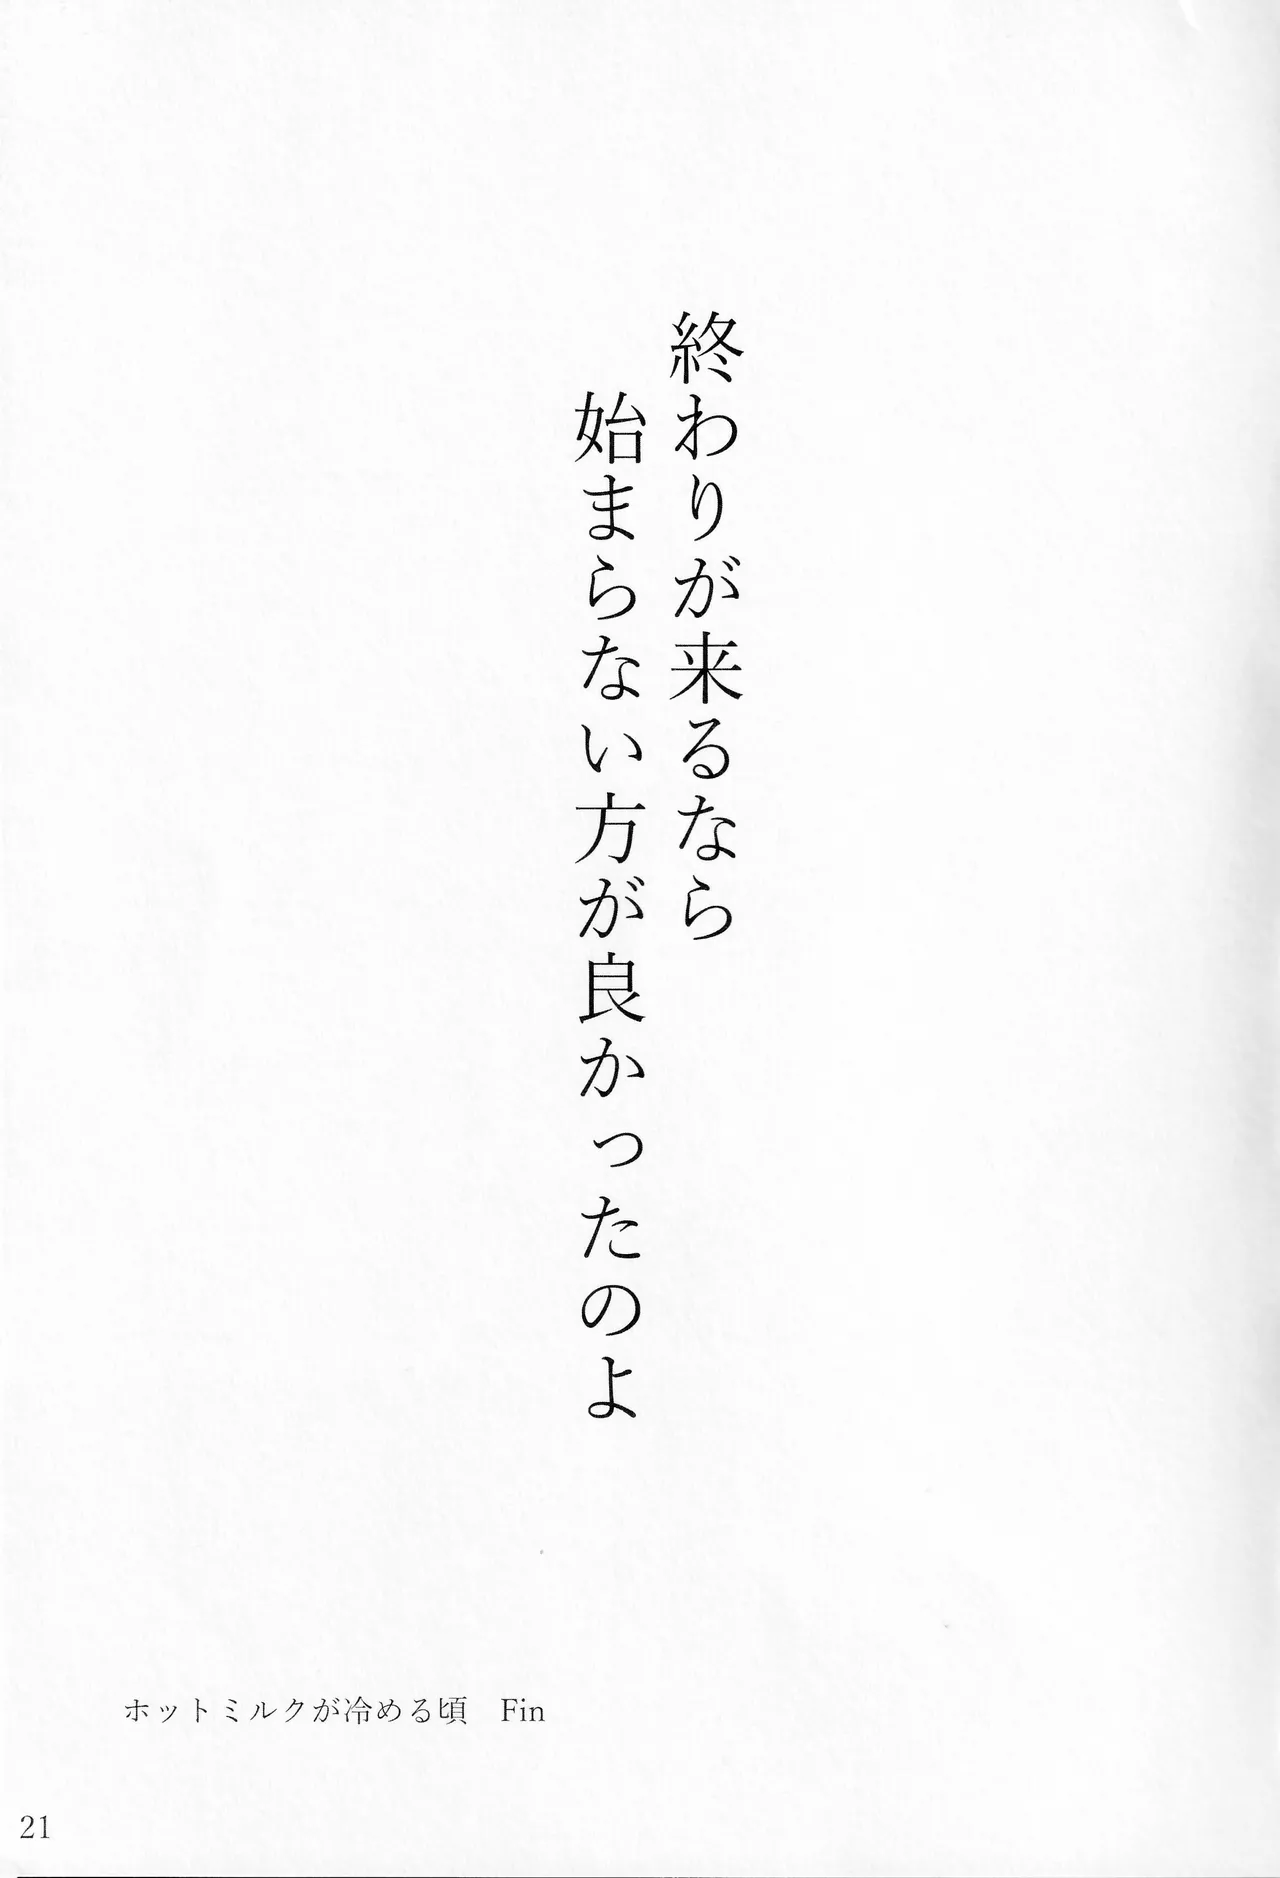 終わりが来るなら
始まらない方が良かったのよ
ホットミルクが冷める頃　Fin
21